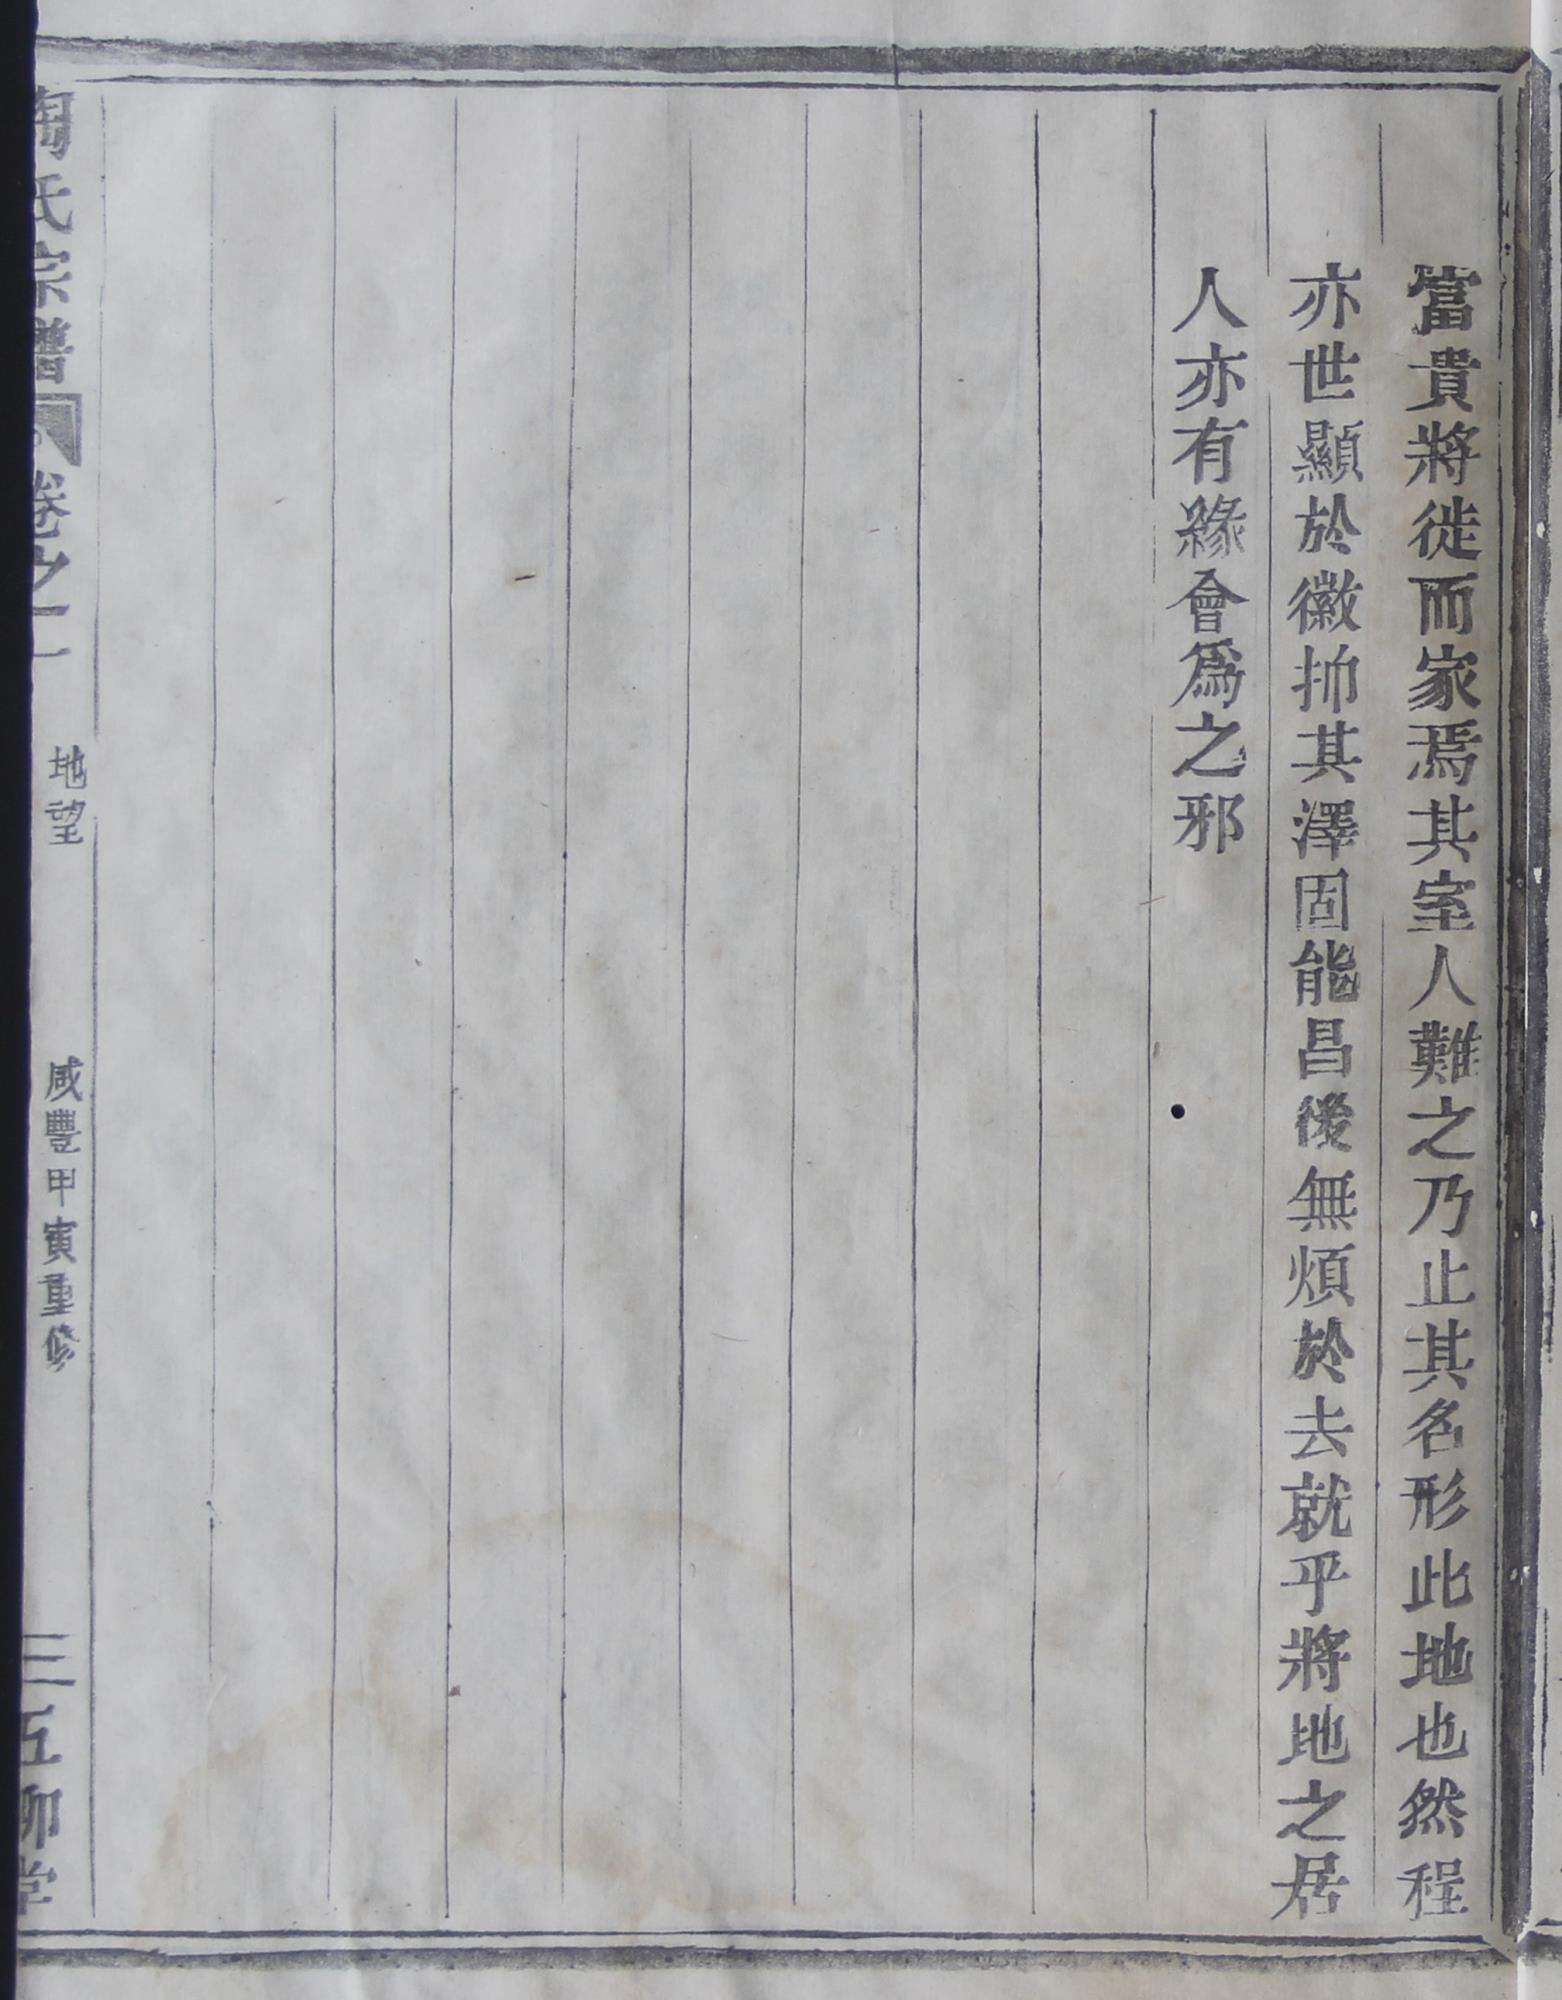 富貴將徙而家焉其室人難之乃止其名形此地也然程
亦世顯於徽抑其澤固能昌後無煩於去就乎將地之居
人亦有緣會為之邪
陶氏宗譜
卷之一
地望
咸豐甲寅重修
三
五柳堂